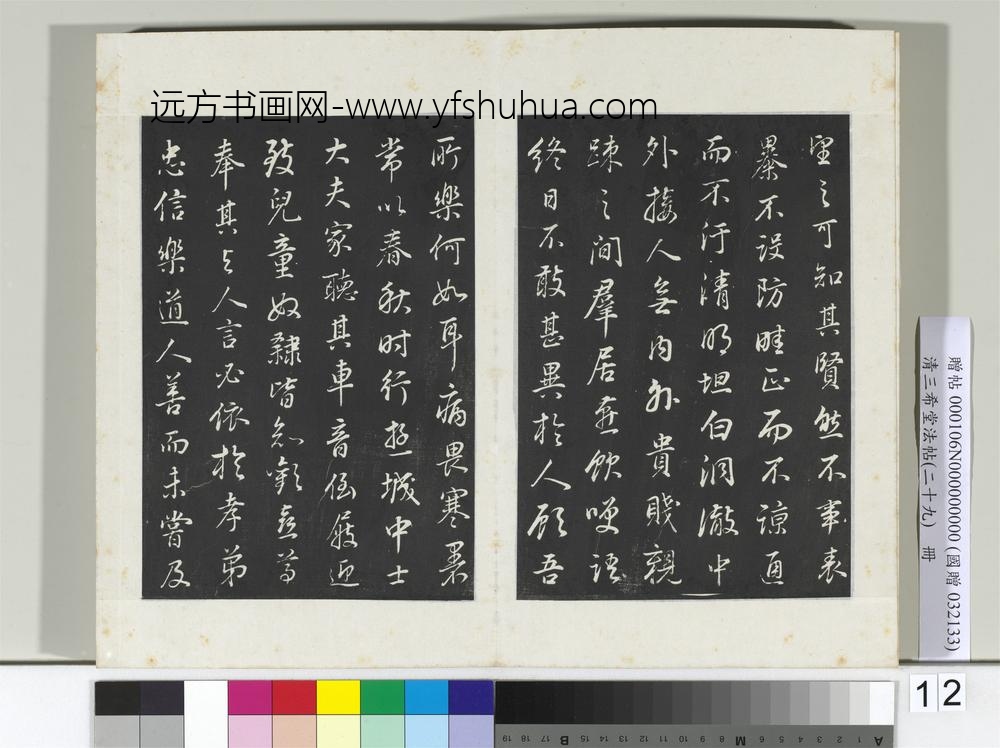 远方书画网-www.yfshuhua.com
望之可知其賢然不事表
暴不設防畦正而不諒通
而不汙清明坦白洞徹中
外接人無内外貴賤親
疎之間羣居燕飲笑語
終日不敢甚異於人顧吾
所樂何如耳病畏寒暑
常以春秋时行遊城中士
大夫家聽其車音倒屣迎
致兒童奴隸皆知歡喜尊
奉其与人言必依於孝弟
忠信樂道人善而未嘗及
贈帖 000106N000000000 (國贈 032133)
清三希堂法帖(二十九) 冊
12
A 1 2 3 4 5 6 M 8 9 10 11 12 13 14 15 B 17 18 19